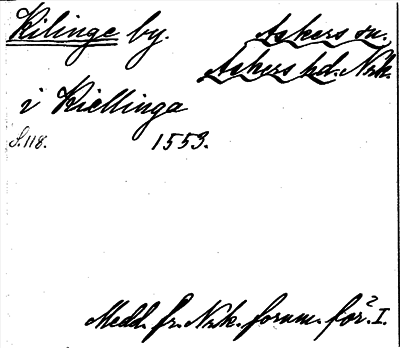 Kilinge by. Askers sn.
Askers hd. Nrk.
i Kiellinga
S. 118. 1553.
Medd. fr. Nrk. fornm. för. I.